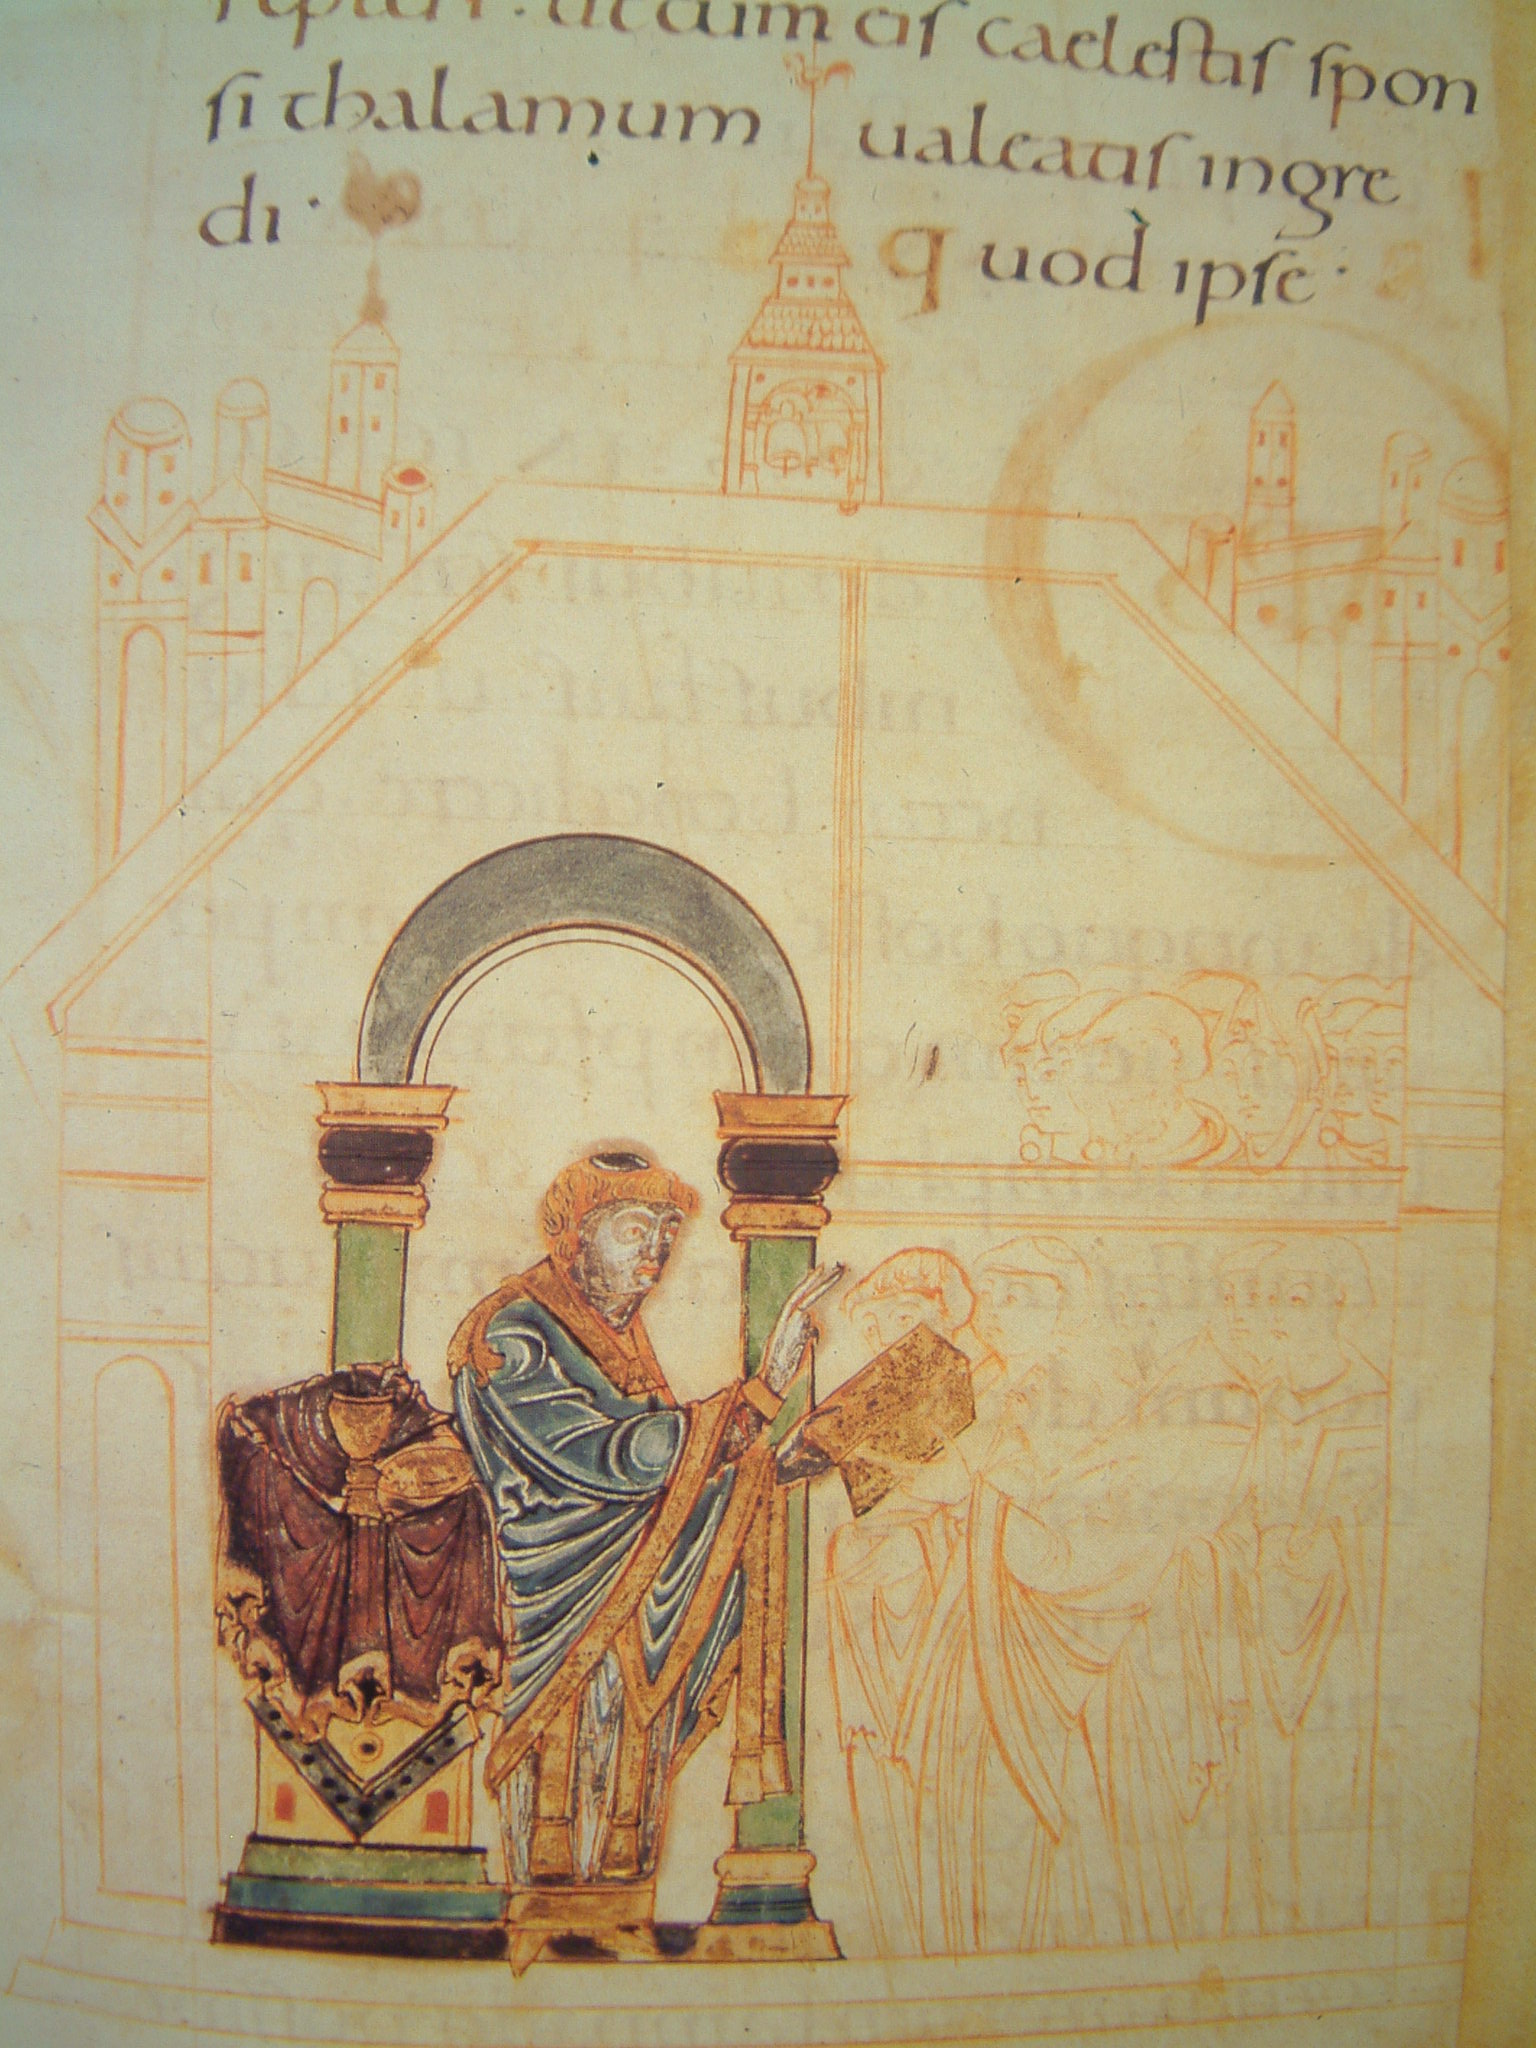 ut cum eis caelestis spon
si thalamum ualeatis ingre
di · quod ipse ·